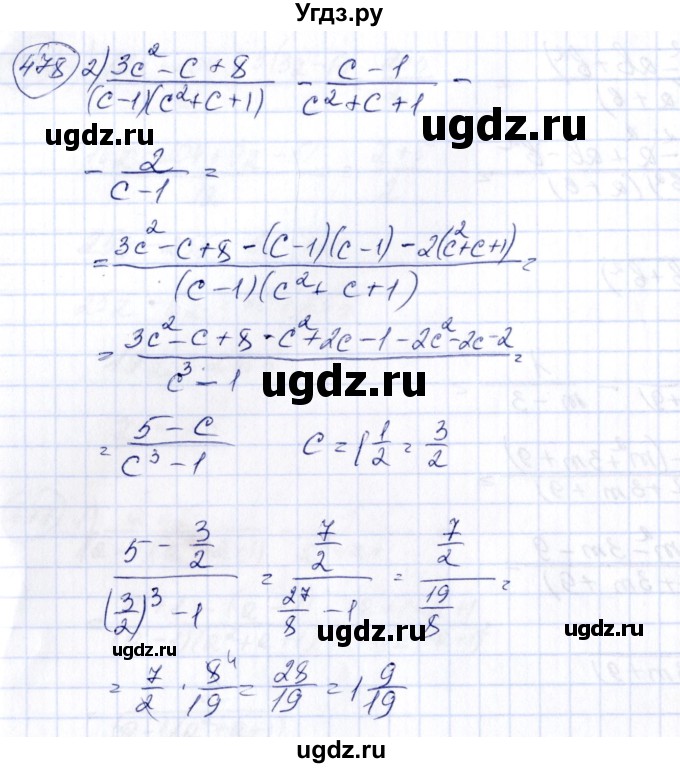 Угдз.ру
478 2) (3c² - c + 8)/((c-1)(c²+c+1)) - (c-1)/(c²+c+1) -
ugdz.ru ugdz.ru
- 2/(c-1) =
= (3c² - c + 8 - (c-1)(c-1) - 2(c²+c+1))/((c-1)(c²+c+1)) =
= (3c² - c + 8 - c² + 2c - 1 - 2c² - 2c - 2)/(c³ - 1) =
ugdz.ru
= (5 - c)/(c³ - 1) c = 1 1/2 = 3/2
(5 - 3/2)/((3/2)³ - 1) = (7/2)/(27/8 - 1) = (7/2)/(19/8) =
ugdz.ru
ugdz.ru
= 7/2 · 8⁴/19 = 28/19 = 1 9/19
ugdz.ru